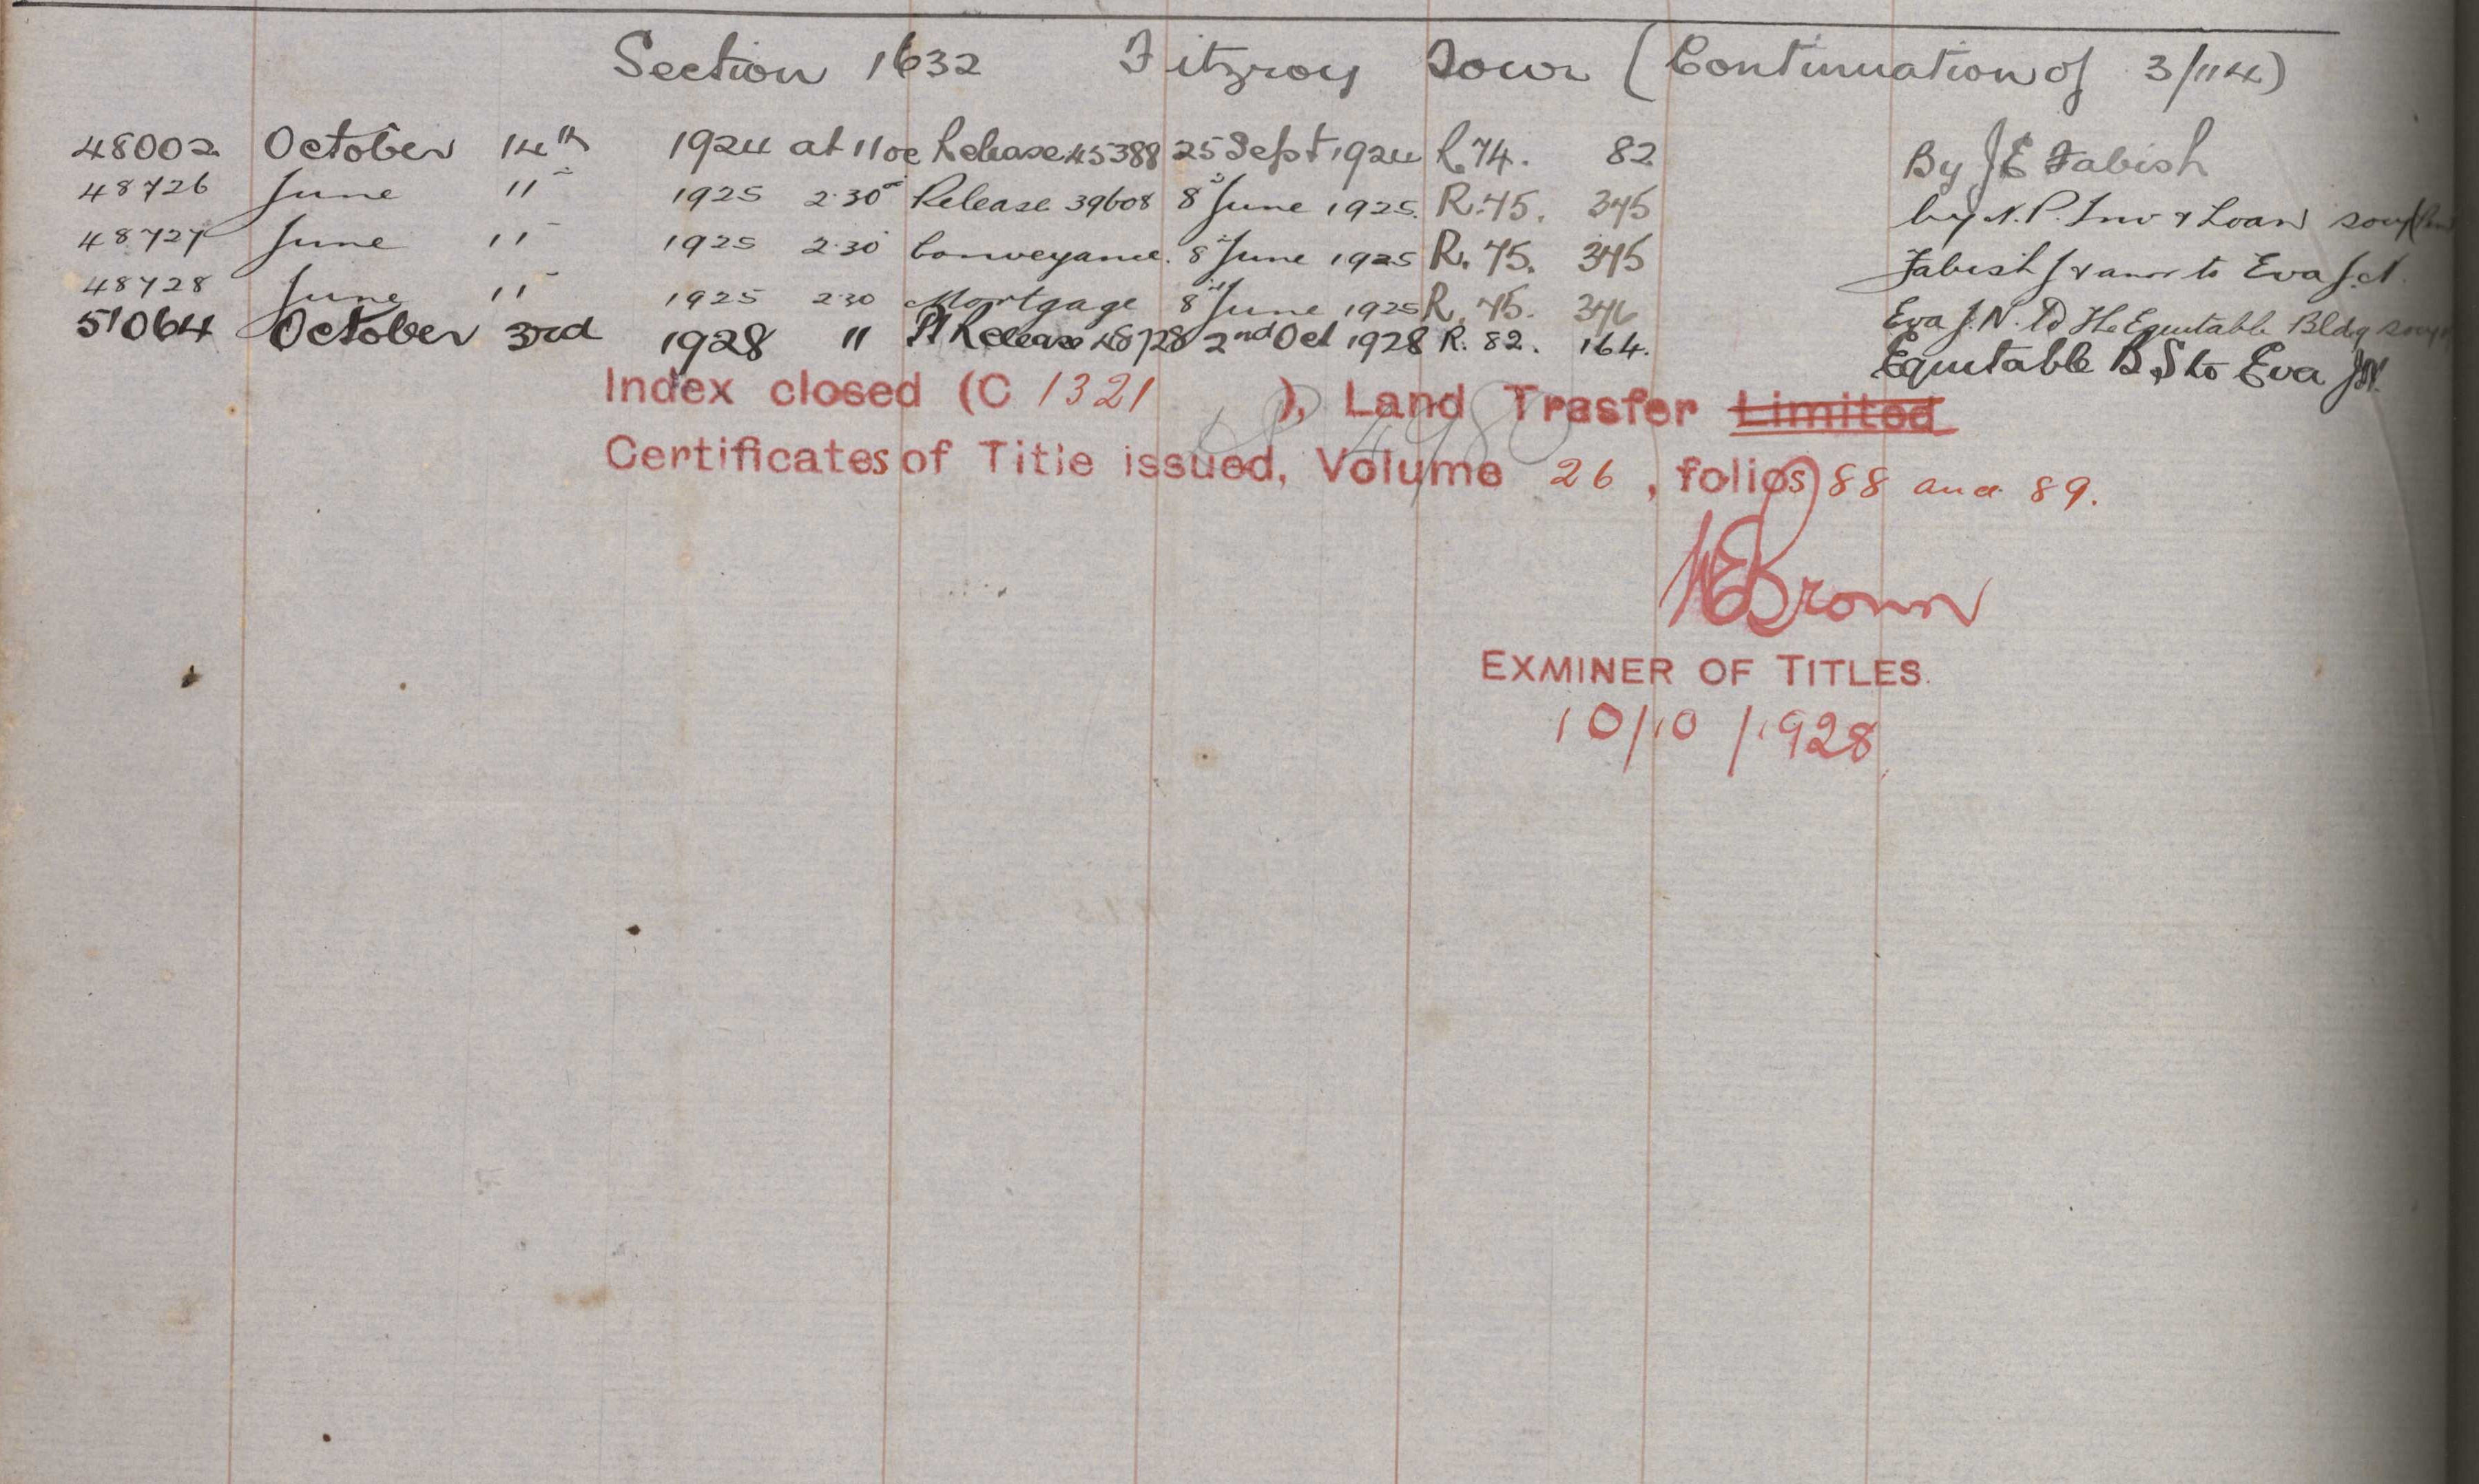 Section 1632 Fitzroy Town (Continuation of 3/114)
48002 October 14th 1924 at 11 oc Release 45388 25 Sept 1924 R.74. 82 By J E Fabish
48726 June 11th 1925 2.30 Release 39608 8th June 1925. R.75. 345 by N.P. Inv & Loan Socy
48727 June 11 1925 2.30 Conveyance. 8th June 1925 R. 75. 345 Fabish J & anor to Eva J.N.
48728 June 11 1925 2.30 Mortgage 8th June 1925 R. 75. 346 Eva J.N. to The Equitable Bldg Socy
51064 October 3rd 1928 " Pt Release 48728 2nd Oct 1928 R. 82. 164. Equitable B.S to Eva JN.
Index closed (C 1321 ), Land Trasfer Limited
Certificates of Title issued, Volume 26, folios 88 and 89.
WEBrown
EXMINER OF TITLES.
10/10/1928